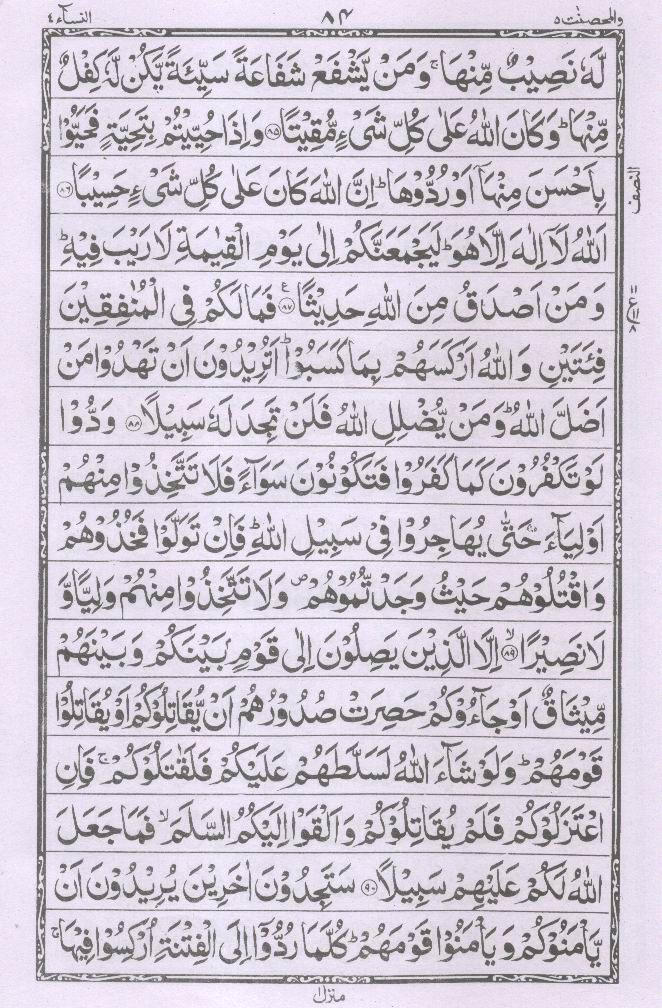 والمحصنٰت ۵ ۸۴ النسآء ۴
لَّهٗ نَصِيْبٌ مِّنْهَا ۚ وَمَنْ يَّشْفَعْ شَفَاعَةً سَيِّئَةً يَّكُنْ لَّهٗ كِفْلٌ
مِّنْهَا ؕ وَكَانَ اللّٰهُ عَلٰى كُلِّ شَيْءٍ مُّقِيْتًا ۝۸۵ وَاِذَا حُيِّيْتُمْ بِتَحِيَّةٍ فَحَيُّوْا
بِاَحْسَنَ مِنْهَاۤ اَوْ رُدُّوْهَا ؕ اِنَّ اللّٰهَ كَانَ عَلٰى كُلِّ شَيْءٍ حَسِيْبًا ۝۸۶
اَللّٰهُ لَاۤ اِلٰهَ اِلَّا هُوَ ؕ لَيَجْمَعَنَّكُمْ اِلٰى يَوْمِ الْقِيٰمَةِ لَا رَيْبَ فِيْهِ ؕ
وَمَنْ اَصْدَقُ مِنَ اللّٰهِ حَدِيْثًا ۝۸۷ ع فَمَا لَكُمْ فِى الْمُنٰفِقِيْنَ
فِئَتَيْنِ وَاللّٰهُ اَرْكَسَهُمْ بِمَا كَسَبُوْا ؕ اَتُرِيْدُوْنَ اَنْ تَهْدُوْا مَنْ
اَضَلَّ اللّٰهُ ؕ وَمَنْ يُّضْلِلِ اللّٰهُ فَلَنْ تَجِدَ لَهٗ سَبِيْلًا ۝۸۸ وَدُّوْا
لَوْ تَكْفُرُوْنَ كَمَا كَفَرُوْا فَتَكُوْنُوْنَ سَوَآءً فَلَا تَتَّخِذُوْا مِنْهُمْ
اَوْلِيَآءَ حَتّٰى يُهَاجِرُوْا فِيْ سَبِيْلِ اللّٰهِ ؕ فَاِنْ تَوَلَّوْا فَخُذُوْهُمْ
وَاقْتُلُوْهُمْ حَيْثُ وَجَدْتُّمُوْهُمْ ۪ وَلَا تَتَّخِذُوْا مِنْهُمْ وَلِيًّا وَّ
لَا نَصِيْرًا ۙ۝۸۹ اِلَّا الَّذِيْنَ يَصِلُوْنَ اِلٰى قَوْمٍۭ بَيْنَكُمْ وَبَيْنَهُمْ
مِّيْثَاقٌ اَوْ جَآءُوْكُمْ حَصِرَتْ صُدُوْرُهُمْ اَنْ يُّقَاتِلُوْكُمْ اَوْ يُقَاتِلُوْا
قَوْمَهُمْ ؕ وَلَوْ شَآءَ اللّٰهُ لَسَلَّطَهُمْ عَلَيْكُمْ فَلَقٰتَلُوْكُمْ ۚ فَاِنِ
اعْتَزَلُوْكُمْ فَلَمْ يُقَاتِلُوْكُمْ وَاَلْقَوْا اِلَيْكُمُ السَّلَمَ ۙ فَمَا جَعَلَ
اللّٰهُ لَكُمْ عَلَيْهِمْ سَبِيْلًا ۝۹۰ سَتَجِدُوْنَ اٰخَرِيْنَ يُرِيْدُوْنَ اَنْ
يَّاْمَنُوْكُمْ وَيَاْمَنُوْا قَوْمَهُمْ ؕ كُلَّمَا رُدُّوْۤا اِلَى الْفِتْنَةِ اُرْكِسُوْا فِيْهَا ۚ
النصف
منزل ۱